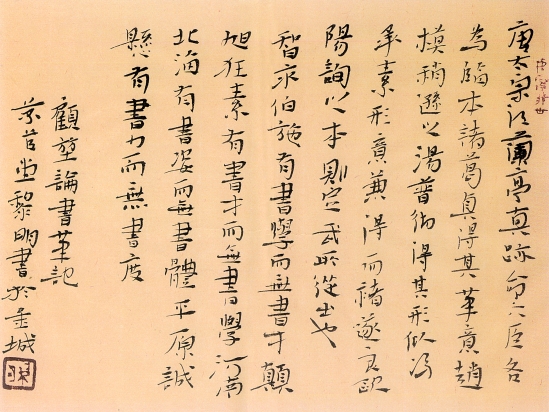 唐太宗得蘭亭真跡命六臣各
為臨本諸葛貞得其筆意趙
模稍遜之湯普徹得其形似馮
承素形意兼得而褚遂良歐
陽詢之本則定武所從出也
智永伯施有書學而無書才顛
旭狂素有書才而無書學河南
北海有書姿而無書體平原誠
懸有書力而無書度
顧堃論書筆記
黎明書於金城